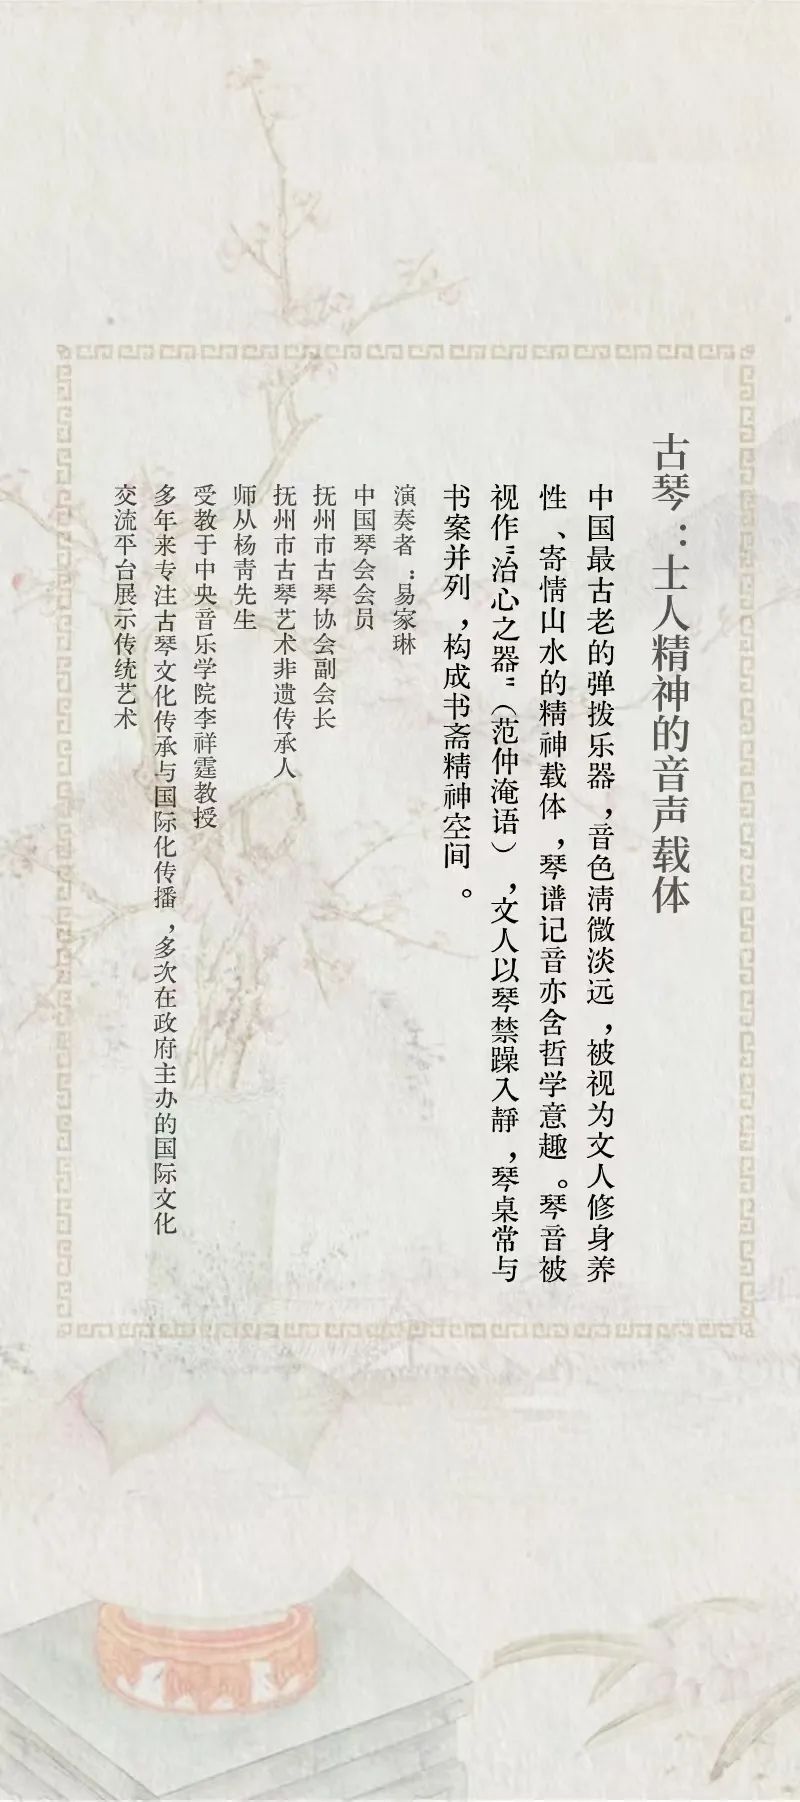 古琴：士人精神的音声载体
中国最古老的弹拨乐器，音色清微淡远，被视为文人修身养
性、寄情山水的精神载体，琴谱记音亦含哲学意趣。琴音被
视作"治心之器"（范仲淹语），文人以琴禁躁入静，琴桌常与
书案并列，构成书斋精神空间。
演奏者：易家琳
中国琴会会员
抚州市古琴协会副会长
抚州市古琴艺术非遗传承人
师从杨青先生
受教于中央音乐学院李祥霆教授
多年来专注古琴文化传承与国际化传播，多次在政府主办的国际文化
交流平台展示传统艺术